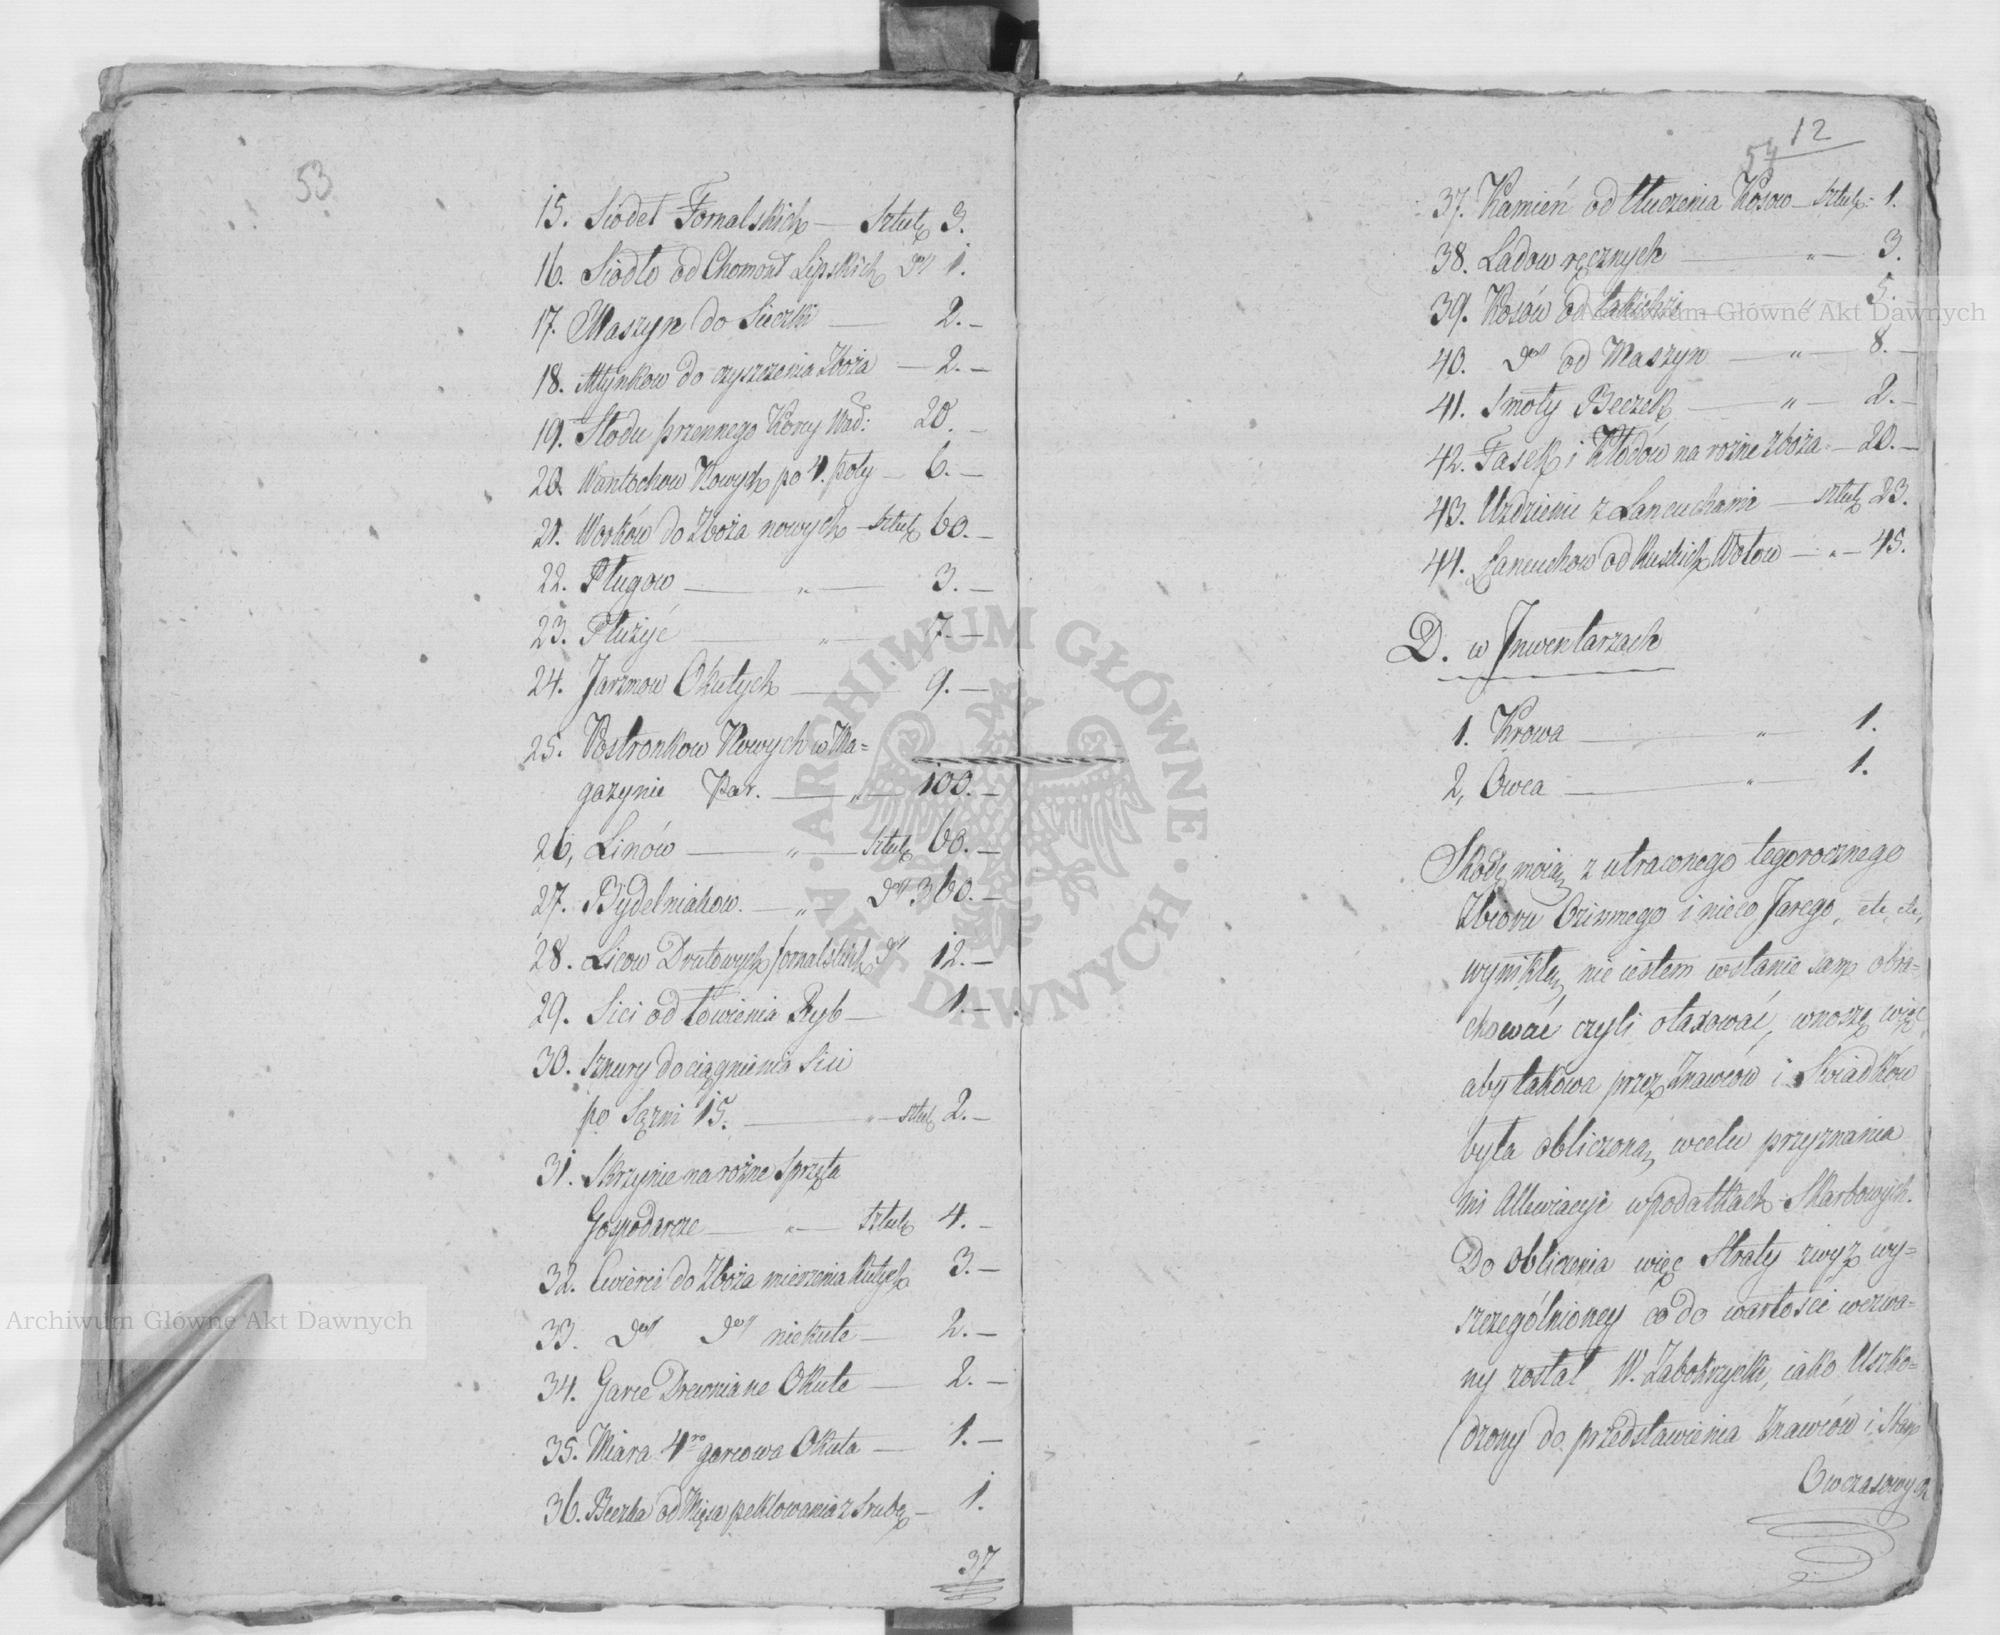 53
15. Siodeł Fornalskich — Sztuk 3.
16. Siodło od Chomont Lipskich dtt 1.
17. Maszyn do Sieczki — 2. —
18. Młynkow do czyszczenia Zboża — 2. —
19. Słodu przennego Korcy Wad: 20. —
20. Wantochow Nowych po 4. poły — 6. —
21. Workow do Zboża nowych — Sztuk 60. —
22. Pługow — „ — 3. —
23. Płużyć — „ — 7. —
24. Jarzmow Okutych — 9. —
25. Postronkow Nowych w Ma=
gazynie Par. — „ — 100. —
26, Linów — „ — Sztuk 60. —
27. Bydelniakow. — „ — dtt 360. —
28. Licow Drutowych fornalskich dtt 12. —
29. Sici od łowienia Ryb — 1. —
30. Sznury do ciągnienia Sici
po Sążni 15. — „ — sztuk 2. —
31. Skrzynie na rożne Sprzęta
Gospodarcze — „ — Sztuk 4. —
32. Cwierci do Zboża mierzenia Kutych 3. —
33. dtt dtt niekute — 2. —
34. Garce Drewniane Okute — 2. —
35. Miara 4ro garcowa Okuta — 1. —
36. Beczka od Mięsa peklowania z Srubą — 1.
37
12
54
37. Kamień od tłuczenia Kosow — Sztuk — 1.
38. Ladow ręcznych — „ — 3.
39. Kosów od takichże — „ — 5.
40. dtt od Maszyn — „ — 8. —
41. Smoły Beczek — „ — 2. —
42. Fasek i Kłodów na rożne zboża — 20. —
43. Uzdzienic z Lancuchami — sztuk 23.
44. Łancuchow od Ruskich Wołow — „ — 45.
D. w Inwentarzach
1. Krowa — „ — 1.
2, Owca — „ — 1.
Skodę moią z utraconego tegorocznego
Zbioru Ozimnego i nieco Jarego, etc, etc,
wynikłą nie iestem wstanie sam obra=
chować czyli otaxować, wnoszę więc
aby takowa przez Znawców i Swiadków
była obliczoną wcelu przyznania
mi Allewiacyi w podatkach Skarbowych.
Do Obliczenia więc Straty zwyż wy=
szczególnioney co do wartości wezwa=
ny został W. Zabokrzycki, iako Uszko=
dzony do przedstawienia Znawców i Skaz
Owczasowych
Archiwum Główne Akt Dawnych
Archiwum Główne Akt Dawnych
· ARCHIWUM GŁÓWNE · AKT DAWNYCH